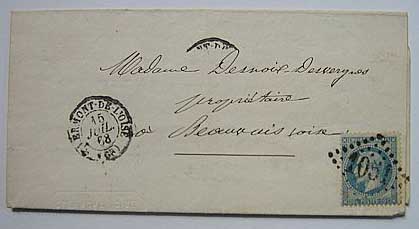 Madame Desnoix-Desvergnes
propriétaire
Beauvais oise
CLERMONT-DE-L'OISE
15
JUIL.
68